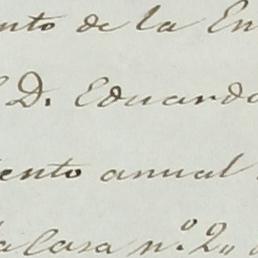 nto de la En
D. Eduardo
ento anual
la Casa nº. 2,,